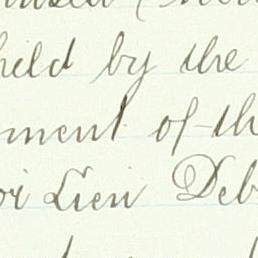 held by the
ment of th
or Lien Deb